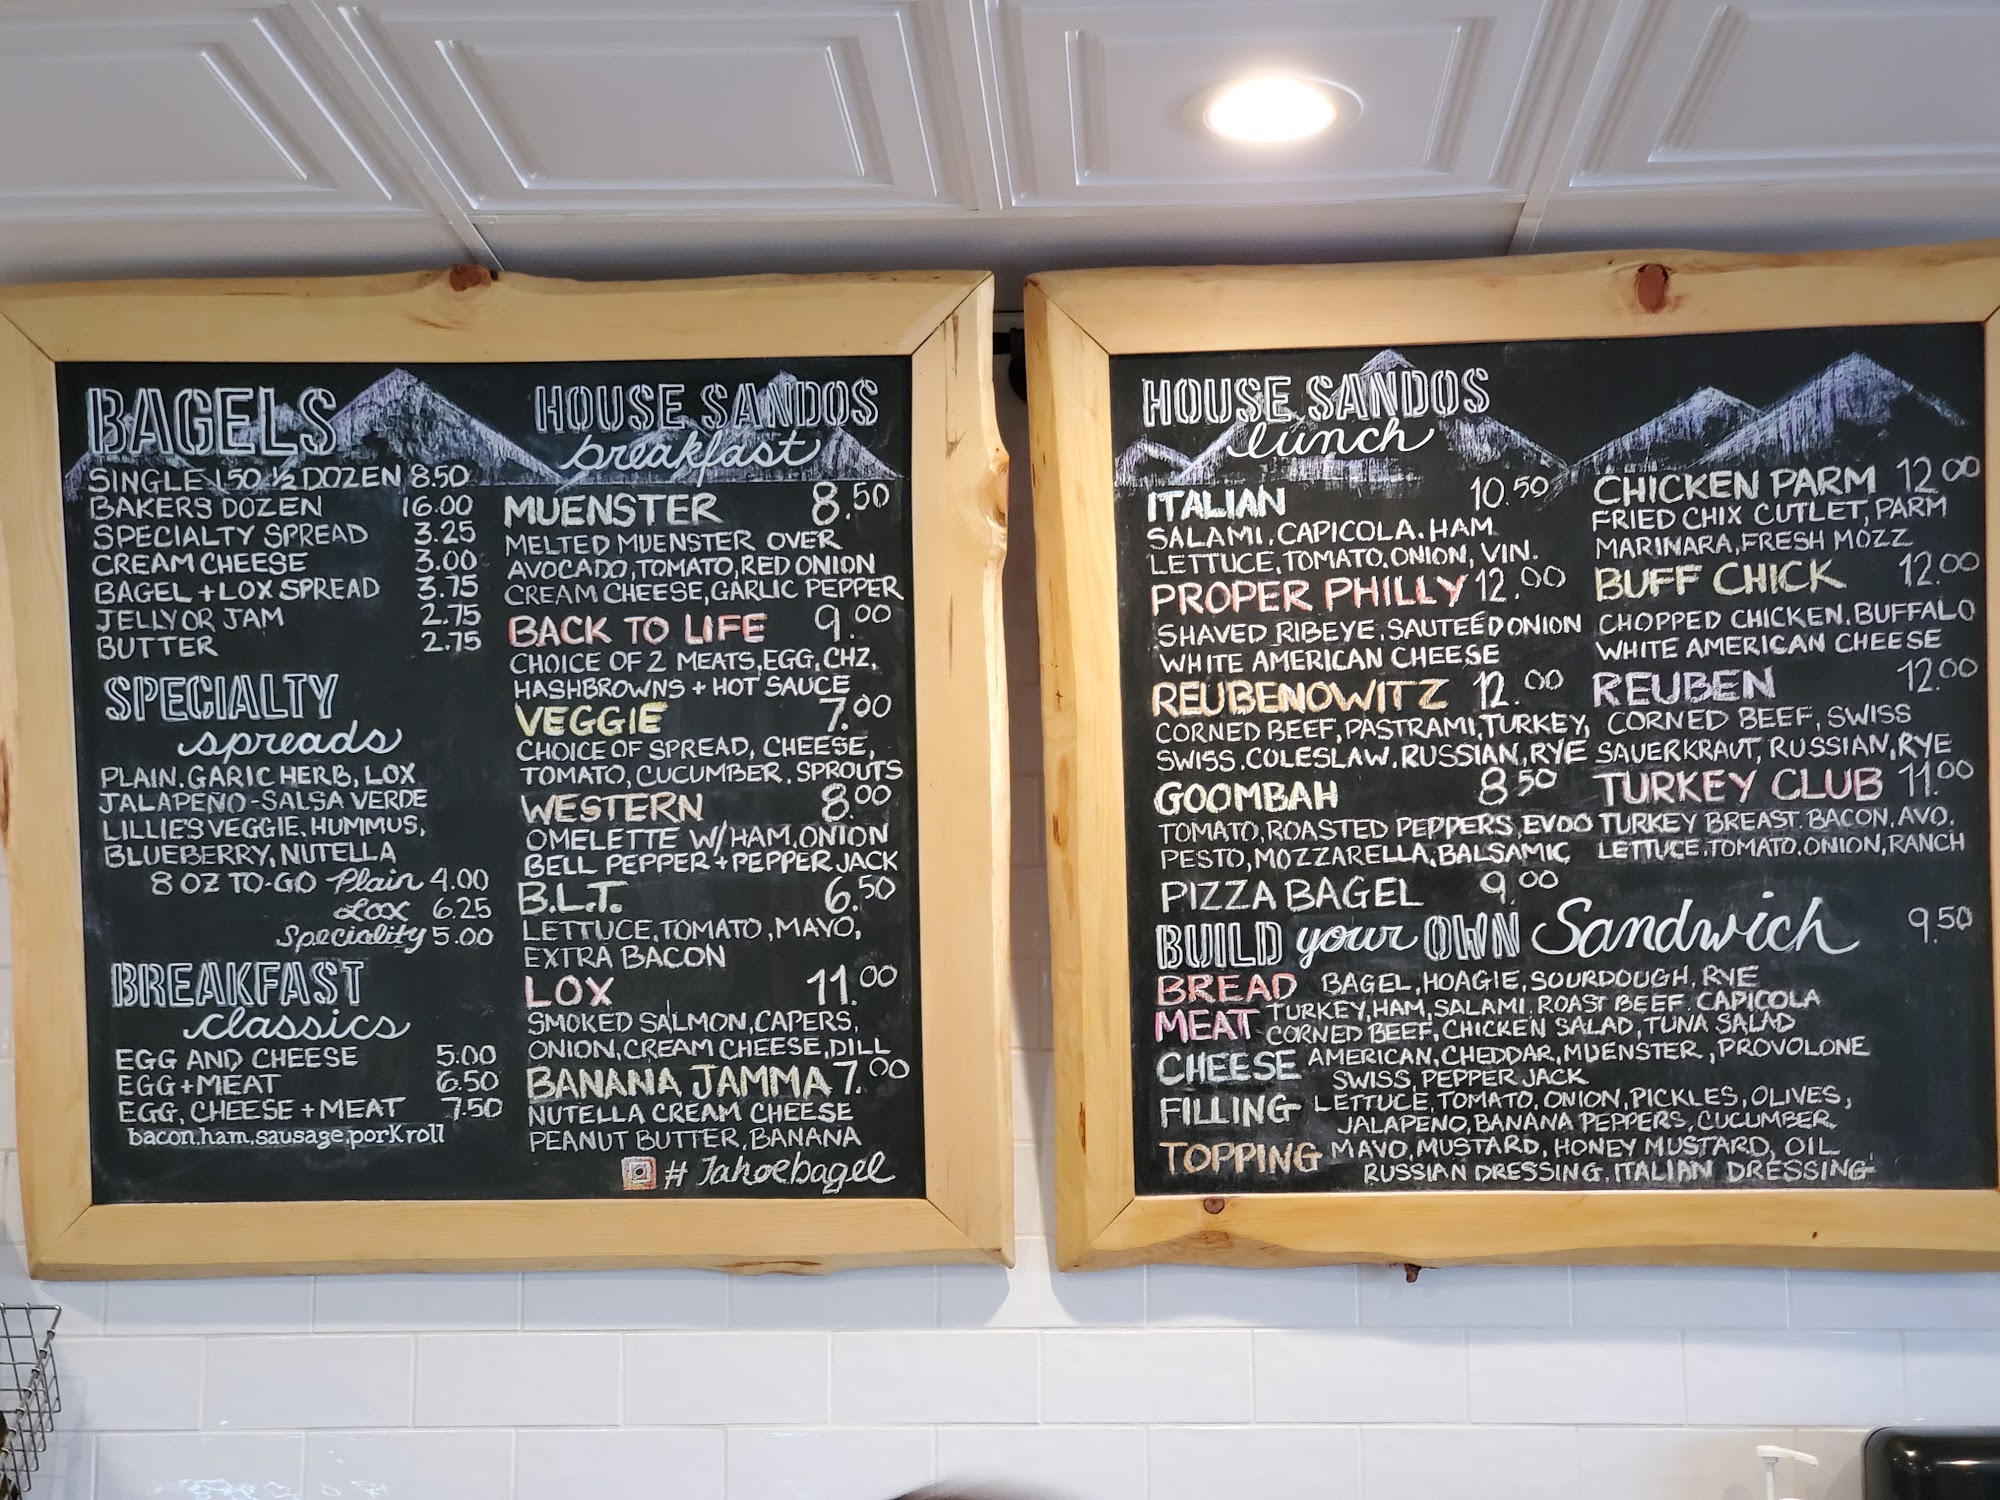 BAGELS
SINGLE 1.50 ½ DOZEN 8.50
BAKERS DOZEN 16.00
SPECIALTY SPREAD 3.25
CREAM CHEESE 3.00
BAGEL + LOX SPREAD 3.75
JELLY OR JAM 2.75
BUTTER 2.75
SPECIALTY
spreads
PLAIN, GARIC HERB, LOX
JALAPEÑO-SALSA VERDE
LILLIE'S VEGGIE, HUMMUS,
BLUEBERRY, NUTELLA
8 OZ TO-GO Plain 4.00
Lox 6.25
Speciality 5.00
BREAKFAST
classics
EGG AND CHEESE 5.00
EGG + MEAT 6.50
EGG, CHEESE + MEAT 7.50
bacon, ham, sausage, porK roll
HOUSE SANDOS
breakfast
MUENSTER 8.50
MELTED MUENSTER OVER
AVOCADO, TOMATO, RED ONION
CREAM CHEESE, GARLIC PEPPER
BACK TO LIFE 9.00
CHOICE OF 2 MEATS, EGG, CHZ,
HASHBROWNS + HOT SAUCE
VEGGIE 7.00
CHOICE OF SPREAD, CHEESE,
TOMATO, CUCUMBER, SPROUTS
WESTERN 8.00
OMELETTE W/HAM, ONION
BELL PEPPER + PEPPER JACK
B.L.T. 6.50
LETTUCE, TOMATO, MAYO,
EXTRA BACON
LOX 11.00
SMOKED SALMON, CAPERS,
ONION, CREAM CHEESE, DILL
BANANA JAMMA 7.00
NUTELLA CREAM CHEESE
PEANUT BUTTER, BANANA
# Tahoebagel
HOUSE SANDOS
lunch
ITALIAN 10.50
SALAMI, CAPICOLA, HAM
LETTUCE, TOMATO, ONION, VIN.
PROPER PHILLY 12.00
SHAVED RIBEYE, SAUTEÉD ONION
WHITE AMERICAN CHEESE
REUBENOWITZ 12.00
CORNED BEEF, PASTRAMI, TURKEY,
SWISS, COLESLAW, RUSSIAN, RYE
GOOMBAH 8.50
TOMATO, ROASTED PEPPERS, EVOO
PESTO, MOZZARELLA, BALSAMIC
PIZZA BAGEL 9.00
CHICKEN PARM 12.00
FRIED CHIX CUTLET, PARM
MARINARA, FRESH MOZZ
BUFF CHICK 12.00
CHOPPED CHICKEN, BUFFALO
WHITE AMERICAN CHEESE
REUBEN 12.00
CORNED BEEF, SWISS
SAUERKRAUT, RUSSIAN, RYE
TURKEY CLUB 11.00
TURKEY BREAST, BACON, AVO,
LETTUCE, TOMATO, ONION, RANCH
BUILD your OWN Sandwich 9.50
BREAD BAGEL, HOAGIE, SOURDOUGH, RYE
MEAT TURKEY, HAM, SALAMI, ROAST BEEF, CAPICOLA
CORNED BEEF, CHICKEN SALAD, TUNA SALAD
CHEESE AMERICAN, CHEDDAR, MUENSTER, PROVOLONE
SWISS, PEPPER JACK
FILLING LETTUCE, TOMATO, ONION, PICKLES, OLIVES,
JALAPENO, BANANA PEPPERS, CUCUMBER,
TOPPING MAYO, MUSTARD, HONEY MUSTARD, OIL
RUSSIAN DRESSING, ITALIAN DRESSING